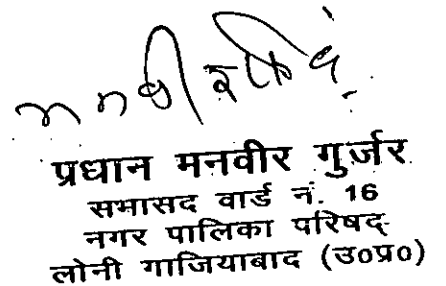 मनवीर सिंह
प्रधान मनवीर गुर्जर
सभासद वार्ड नं. 16
नगर पालिका परिषद्
लोनी गाजियाबाद (उ०प्र०)